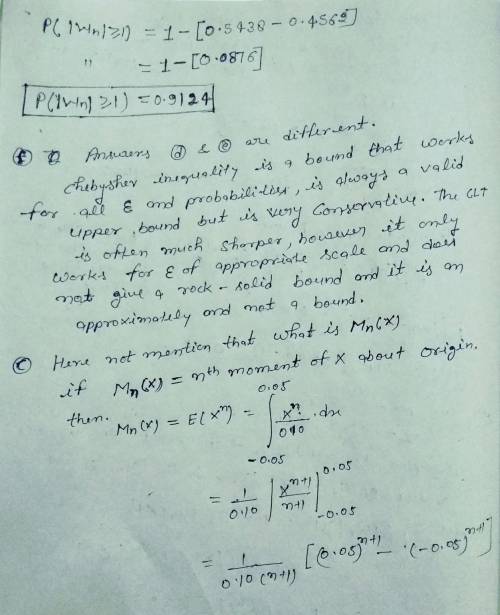 P(|Wn|≥1) = 1-[0.5438 - 0.4562]
" = 1-[0.0876]
P(|Wn|≥1) = 0.9124
(f) Answers (d) & (e) are different.
Chebysher inequality is a bound that works
for all ε and probabilities, is always a valid
upper bound but is very conservative. The CLT
is often much sharper, however it only
works for ε of appropriate scale and does
not give a rock-solid bound and it is an
approximately and not a bound.
(c) Here not mention that what is Mn(X)
if Mn(X) = nth moment of X about origin.
then. Mn(X) = E(X^n) = ∫_{-0.05}^{0.05} x^n/0.10 . dx
= 1/0.10 | x^{n+1}/n+1 |_{-0.05}^{0.05}
= 1/0.10(n+1) [(0.05)^{n+1} - (-0.05)^{n+1}]